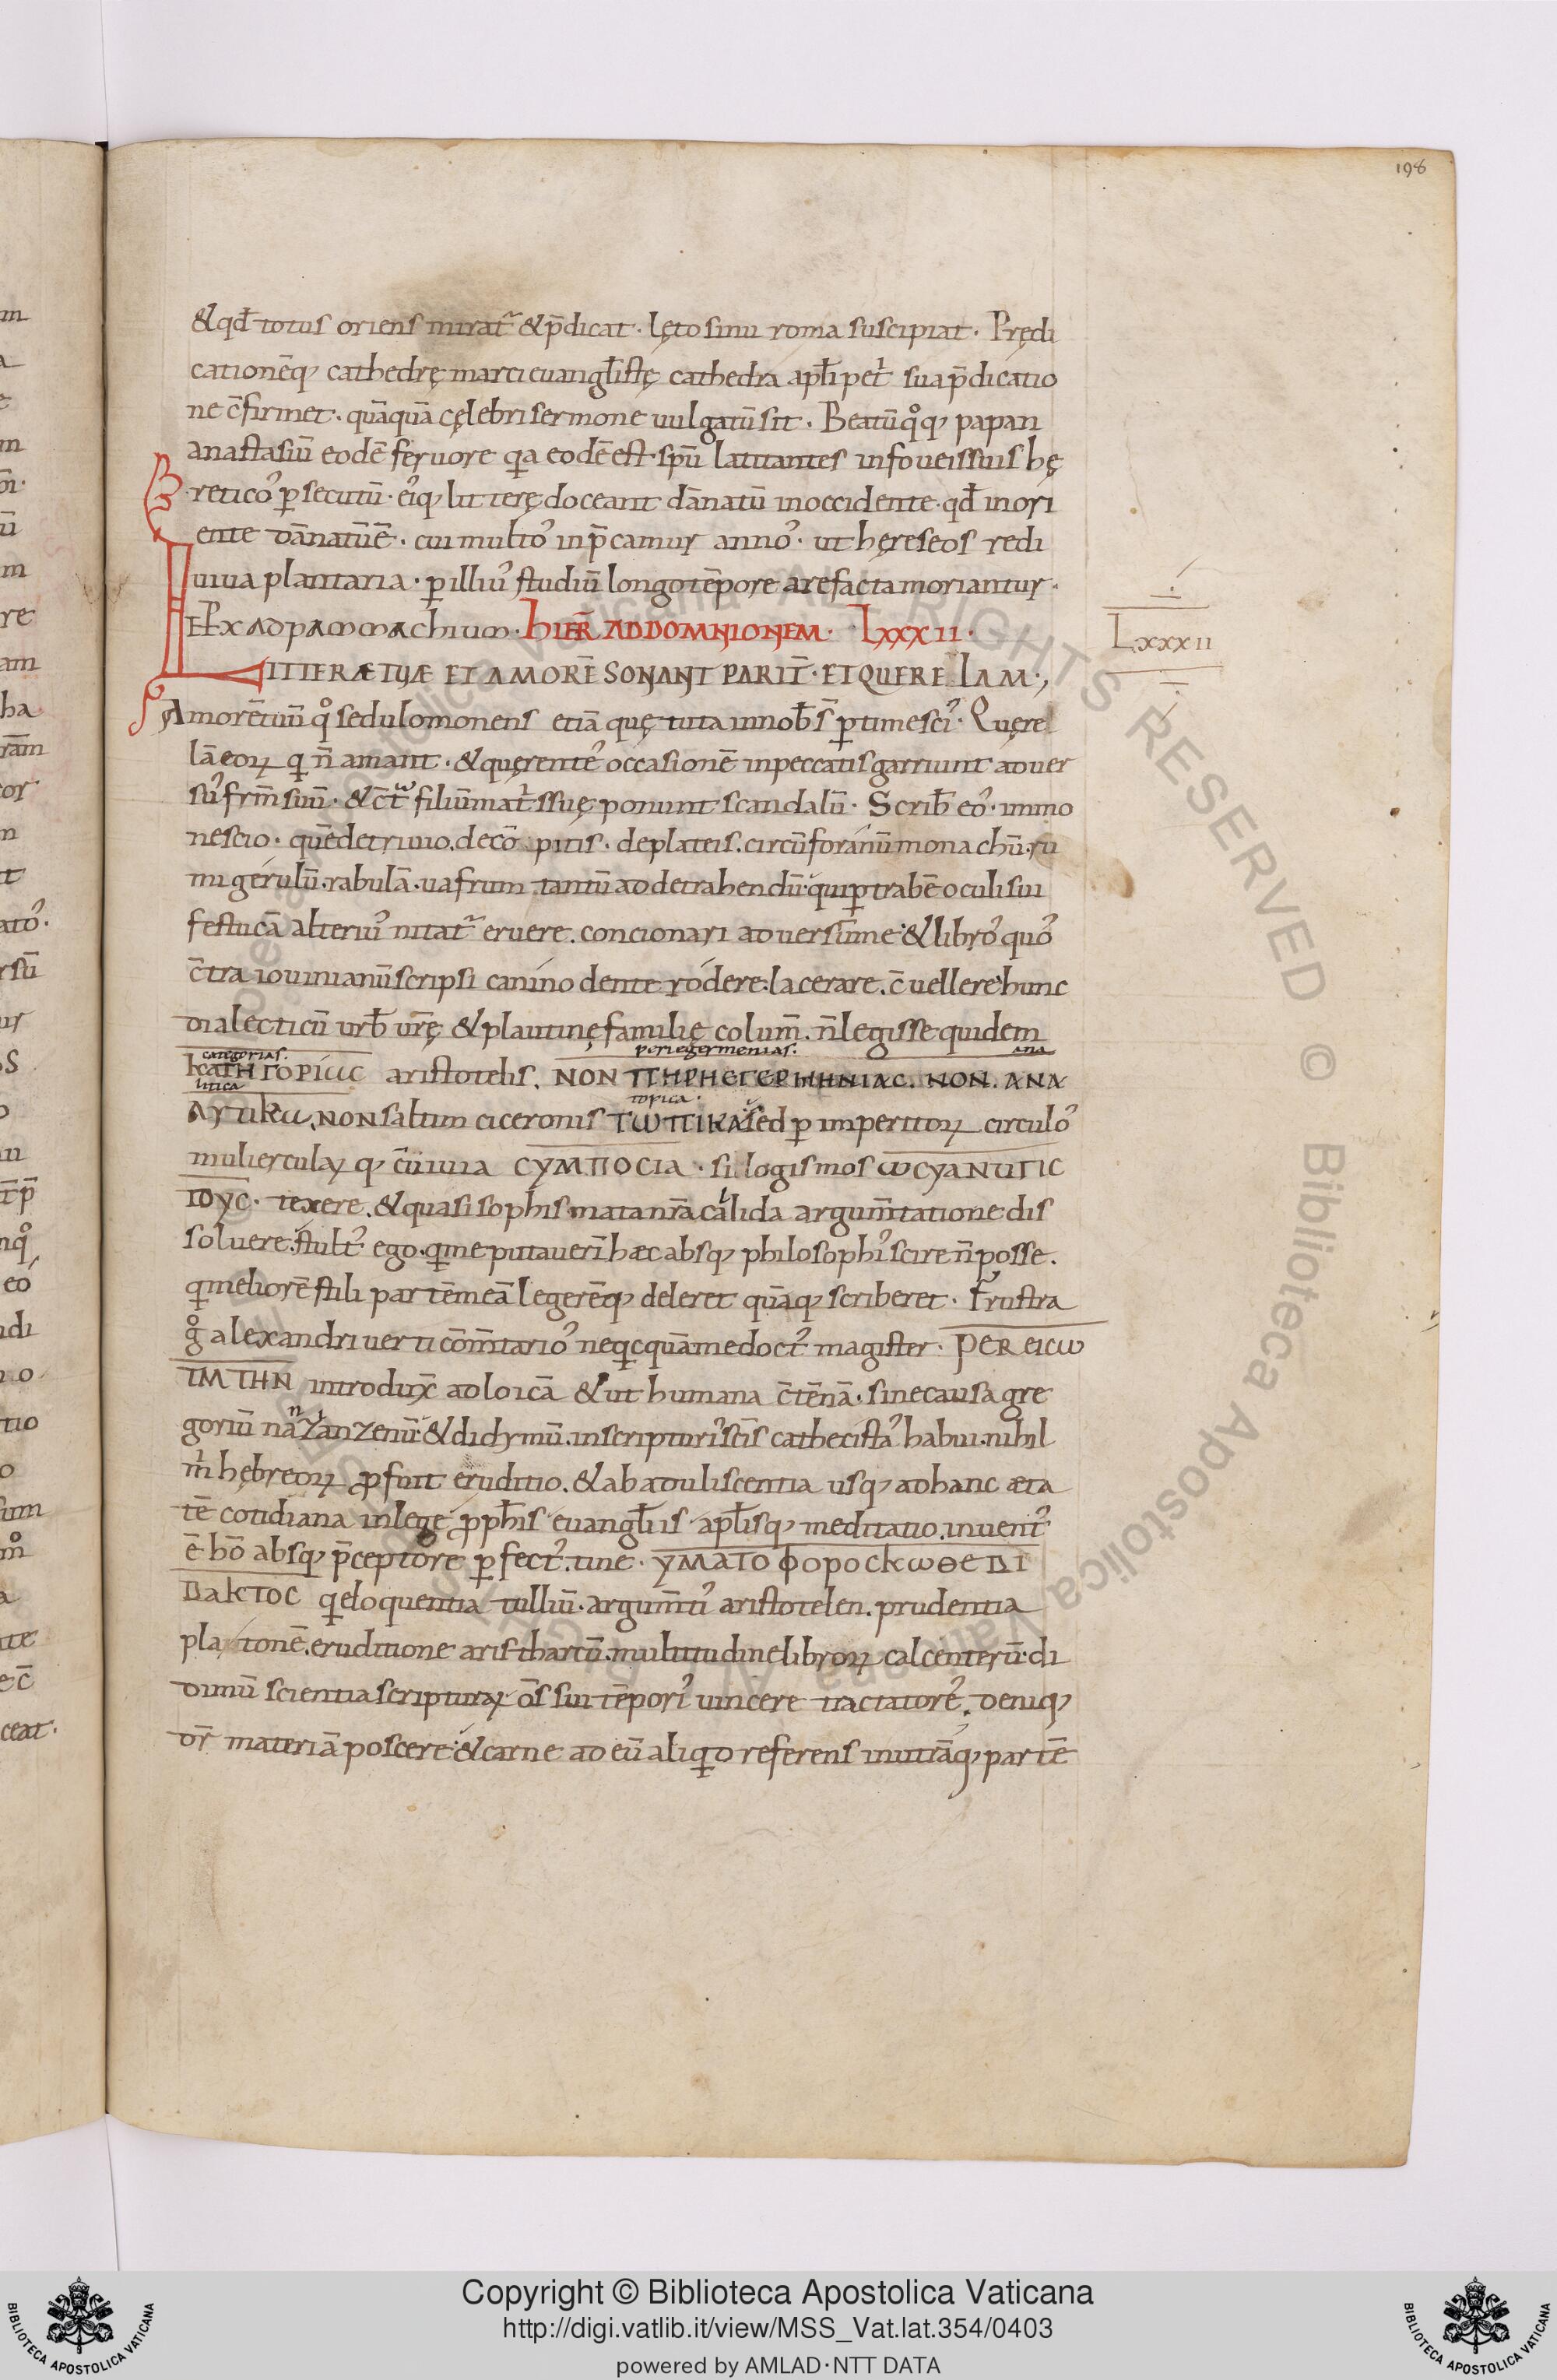 198
&qđ totus oriens mirat᷑ &p̄dicat· lęto sinu roma suscipiat· Prędi
cationēq; cathedrę marci euangl̄istę cathedra apl̄i pet̓ sua p̄dicatio
ne c̄firmet· quāquā cęlebri sermone uulgatū sit· Beatū qͦq; papan
anastasiū eodē feruore qa eodē est· spū latitantes in foueis suis hę
retico᾿ p̱secutū· ei᾿q; litterę doceant dānatū in occidente· qđ in ori
ente dānatū ē· cui multo᾿ inp̄camur anno᾿· ut hęreseos redi
uiua plantaria· p̱ illiu᾿ studiū longo tēpore arefacta moriantur·
EPX AD PAMMACHIUM· HIER̄ AD DOMNIONEM· LXXXII·
Lxxxii
LITTERÆ TUÆ ET AMORĒ SONANT PARIT̄· ET QUERELAM·,
Amorē tuū qͦ sedulo monens etiā quę tuta in nob̄ s̄ p̱timesci᾿· Quęre
lā eoꝝ qi n̄ amant· &quęrente᾿ occasionē in peccatis garriunt aduer
su᾿ frm̄ suū· &c̄t᷑ filiū mat̓s suę ponunt scandalū· Scrib̄ eo᾿· immo
nescio· quē de triuio. de cō pitis· de plateis. circūforanū monachū· ru
migerulū. rabulā. uafrum tantū ad detrahendū· qui p̱ trabē oculi sui
festucā alteriu᾿ nitat᷑ eruere. concionari aduersū me· &libro᾿ quo᾿
c̄tra iouinianū scripsi canino dente rodere· lacerare. c̄uellere· hunc
dialecticū urb̄ ur̄ę &plautinę familię colum̄. n̄ legisse quidem
categorias. periegermenias. ana
KATHΓOPIωC aristotelis. NON ΠHPHEΓEPHHNIAC. NON. ANA
litica topica.
ΛYTIKω. NON saltim ciceronis TωΠIKA· sed p̱ imperitoꝝ circulo᾿
muliercularꝝ q; c̄uiuia CYMΠOCIA· sillogismos ωCYANUΓIC
TOYC· texere. &quasi sophismata nr̄a callida argum̄tatione dis
soluere· stult᾿ ego. qi me putauerī hæc absq; philosophi᾿ scire n̄ posse.
qi meliorē stili partē meā legerēq; deleret quāq; scriberet· Frustra
gͦ alexandri uerti cōm̄tario᾿ neqicquā me doct᾿ magister· PER EICω
ΓMTHN introdux̄ ad loicā &ut humana c̄tēnā· sine causa gre
goriū nāzanzenū· &didymū. in scripturi᾿ sc̄is cathecista᾿ habui. nihil
m̓ hębreoꝝ ꝓfuit eruditio. &ab aduliscentia usq; ad hanc æta
tē cotidiana in lege ꝓph̄is euangl̄iis apl̄isq; meditatio. inuent᾿
ē hō absq; p̄ceptore p̱fect᾿. tine· YMATO ΦOPOCKωΘE DI
DAKTOC qi eloquentia tulliū· argum̄ti᾿ aristotelen. prudentia
platonē. eruditione aristharcū. multitudine libroꝝ calcenterū· di
dimū scientia scripturaꝝ. ōs sui tēpori᾿ uincere tractatore᾿. deniq;
or̄ materiā poscere· &carne ad eū aliqid referens in utrāq; partē
Copyright © Biblioteca Apostolica Vaticana
http://digi.vatlib.it/view/MSS_Vat.lat.354/0403
powered by AMLAD·NTT DATA